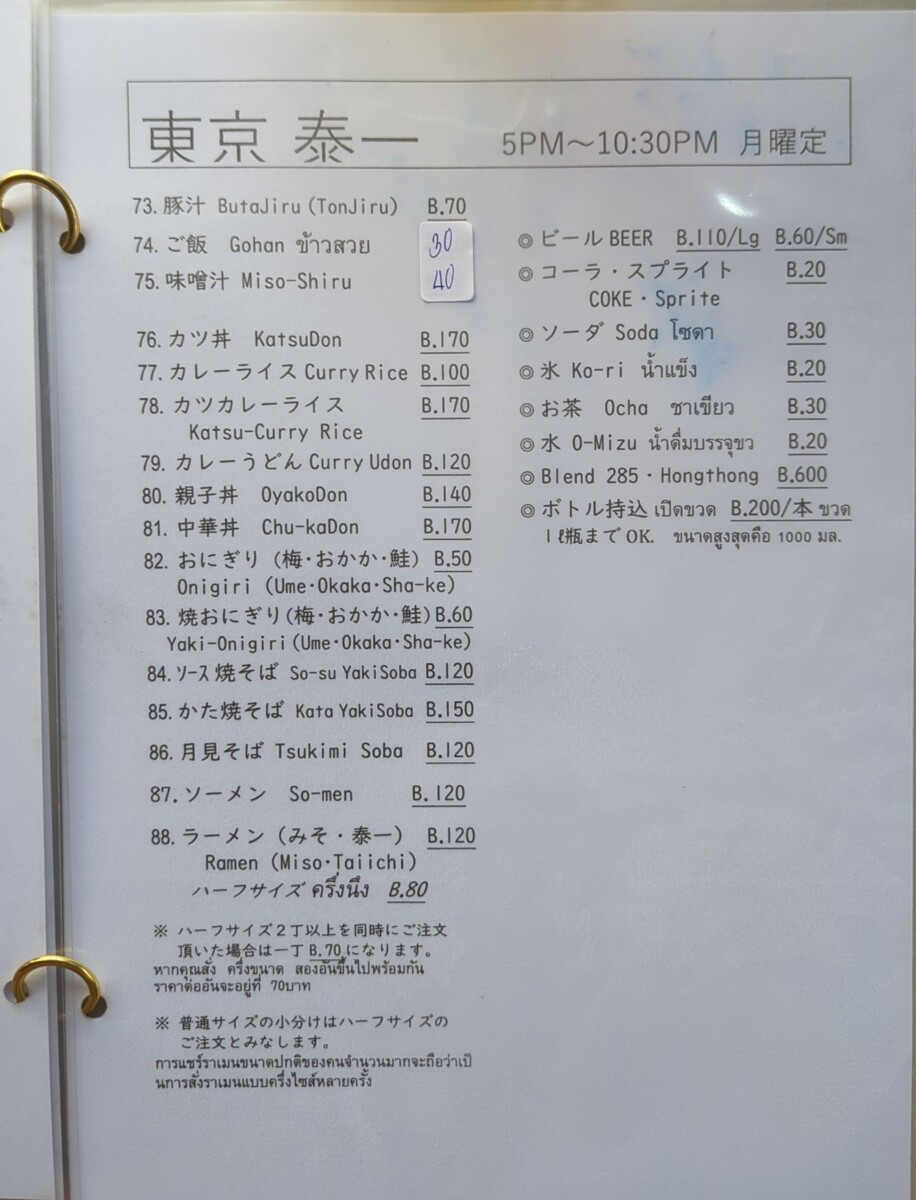 東京 泰一 5PM～10:30PM 月曜定
73. 豚汁 ButaJiru (TonJiru) B.70
74. ご飯 Gohan ข้าวสวย 30
75. 味噌汁 Miso-Shiru 40
76. カツ丼 KatsuDon B.170
77. カレーライス Curry Rice B.100
78. カツカレーライス B.170
Katsu-Curry Rice
79. カレーうどん Curry Udon B.120
80. 親子丼 OyakoDon B.140
81. 中華丼 Chu-kaDon B.170
82. おにぎり (梅・おかか・鮭) B.50
Onigiri (Ume・Okaka・Sha-ke)
83. 焼おにぎり(梅・おかか・鮭) B.60
Yaki-Onigiri (Ume・Okaka・Sha-ke)
84. ソース焼そば So-su YakiSoba B.120
85. かた焼そば Kata YakiSoba B.150
86. 月見そば Tsukimi Soba B.120
87. ソーメン So-men B.120
88. ラーメン (みそ・泰一) B.120
Ramen (Miso・Taiichi)
ハーフサイズ ครึ่งนึง B.80
※ ハーフサイズ２丁以上を同時にご注文
頂いた場合は一丁 B.70 になります。
หากคุณสั่ง ครึ่งขนาด สองอันขึ้นไปพร้อมกัน
ราคาต่ออันจะอยู่ที่ 70บาท
※ 普通サイズの小分けはハーフサイズの
ご注文とみなします。
การแชร์ราเมนขนาดปกติของคนจำนวนมากจะถือว่าเป็
นการสั่งราเมนแบบครึ่งไซส์หลายครั้ง
◎ ビール BEER B.110/Lg B.60/Sm
◎ コーラ・スプライト B.20
COKE・Sprite
◎ ソーダ Soda โซดา B.30
◎ 氷 Ko-ri น้ำแข็ง B.20
◎ お茶 Ocha ชาเขียว B.30
◎ 水 O-Mizu น้ำดื่มบรรจุขว B.20
◎ Blend 285・Hongthong B.600
◎ ボトル持込 เปิดขวด B.200/本 ขวด
1ℓ瓶まで OK. ขนาดสูงสุดคือ 1000 มล.